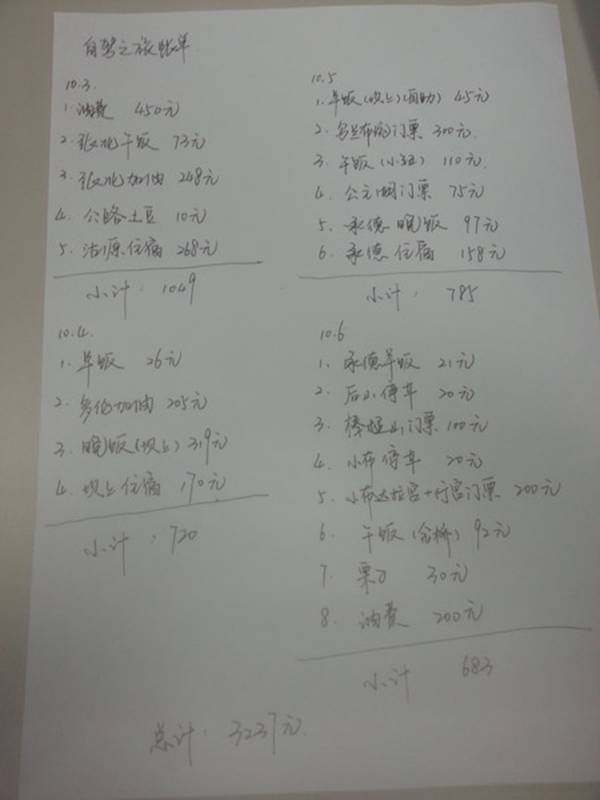 自驾之旅账单
10.3.
1. 油费 450元
2. 张北午饭 73元
3. 张北加油 248元
4. 公路土豆 10元
5. 沽源住宿 268元
小计: 1049
10.4.
1. 早饭 26元
2. 多伦加油 205元
3. 晚饭(坝上) 319元
4. 坝上住宿 170元
小计: 720
10.5
1. 早饭(坝上)(自助) 45元
2. 乌兰布统门票 300元
3. 午饭 110元
4. 公主湖门票 75元
5. 承德晚饭 97元
6. 承德住宿 158元
小计: 785
10.6
1. 承德早饭 21元
2. 后山停车 20元
3. 棒槌山门票 100元
4. 小布停车 20元
5. 小布达拉宫+行宫门票 200元
6. 午饭 92元
7. 栗子 30元
8. 油费 200元
小计 683
总计: 3237元